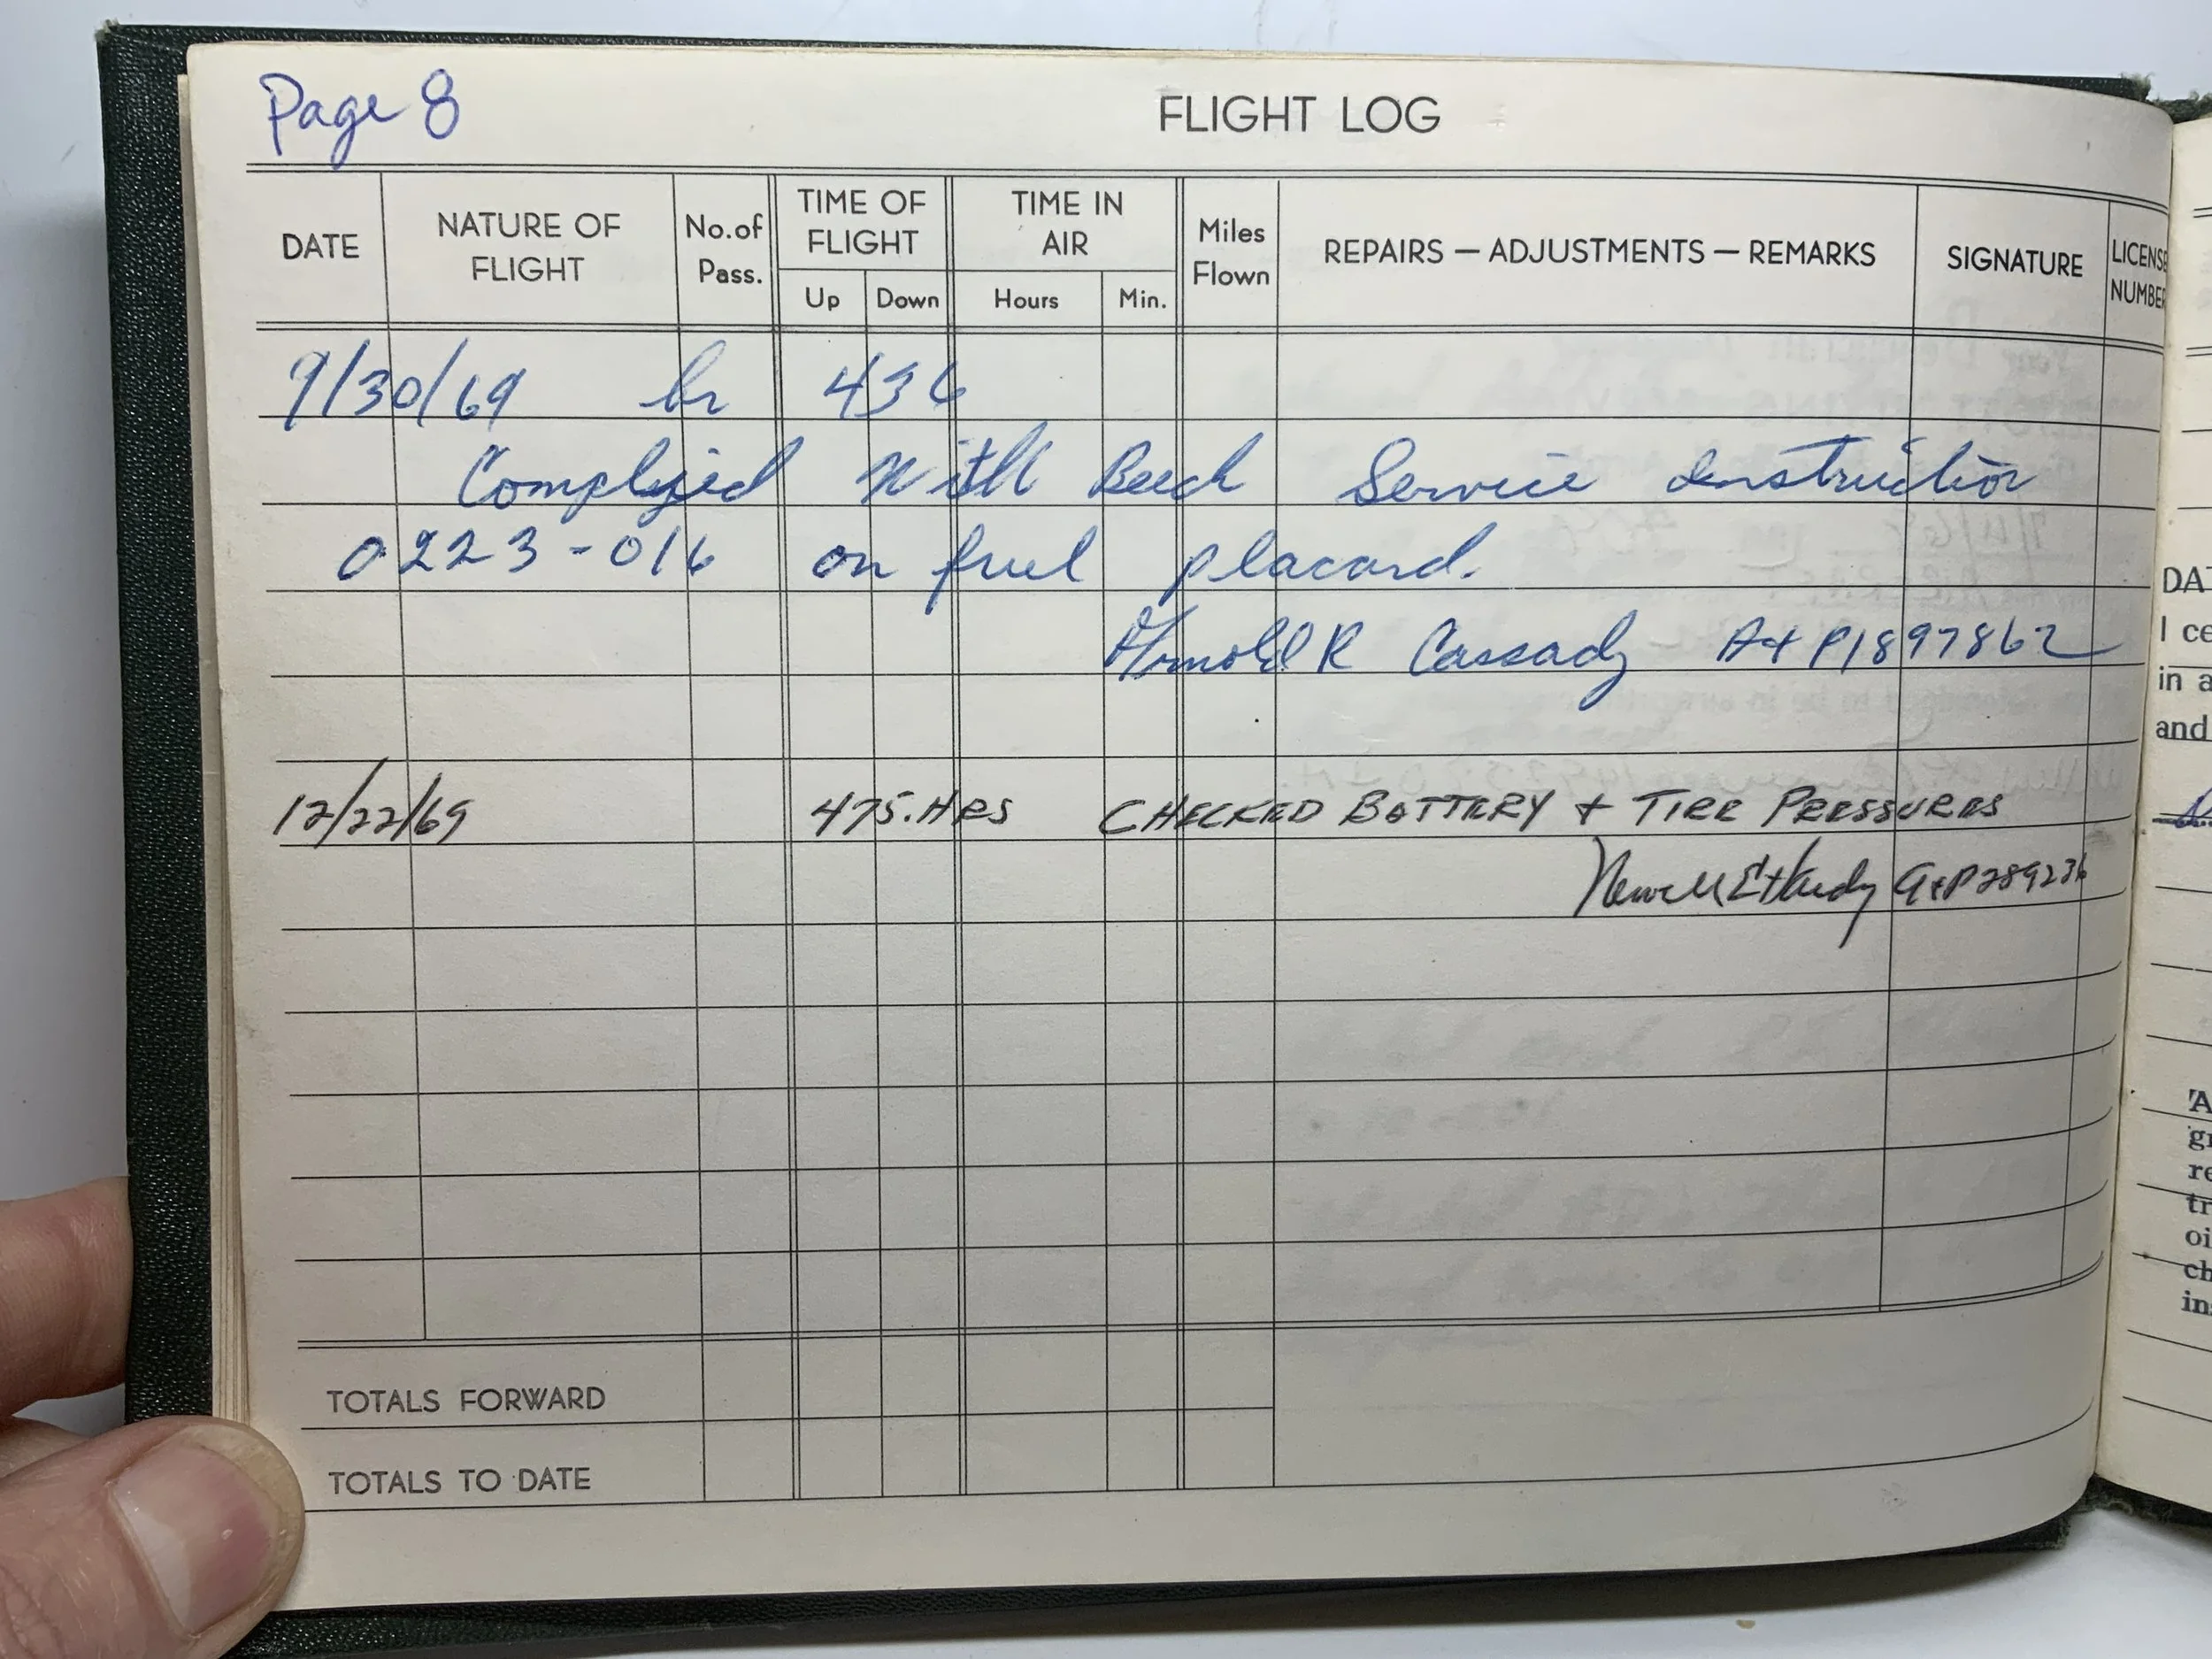 Page 8
FLIGHT LOG
DATE
NATURE OF FLIGHT
No. of Pass.
TIME OF FLIGHT
Up
Down
TIME IN AIR
Hours
Min.
Miles Flown
REPAIRS — ADJUSTMENTS — REMARKS
SIGNATURE
LICENSE NUMBER
9/30/69 hr 436
Complyied With Beech Service Instruction
0223-016 on fuel placard.
Arnold R Cassady A+P1897862
12/22/69 475.HRS CHECKED BATTERY + TIRE PRESSURES
A+P 289236
TOTALS FORWARD
TOTALS TO DATE
DAT
I ce
in a
and
"A
gr
re
tr
oi
ch
ins